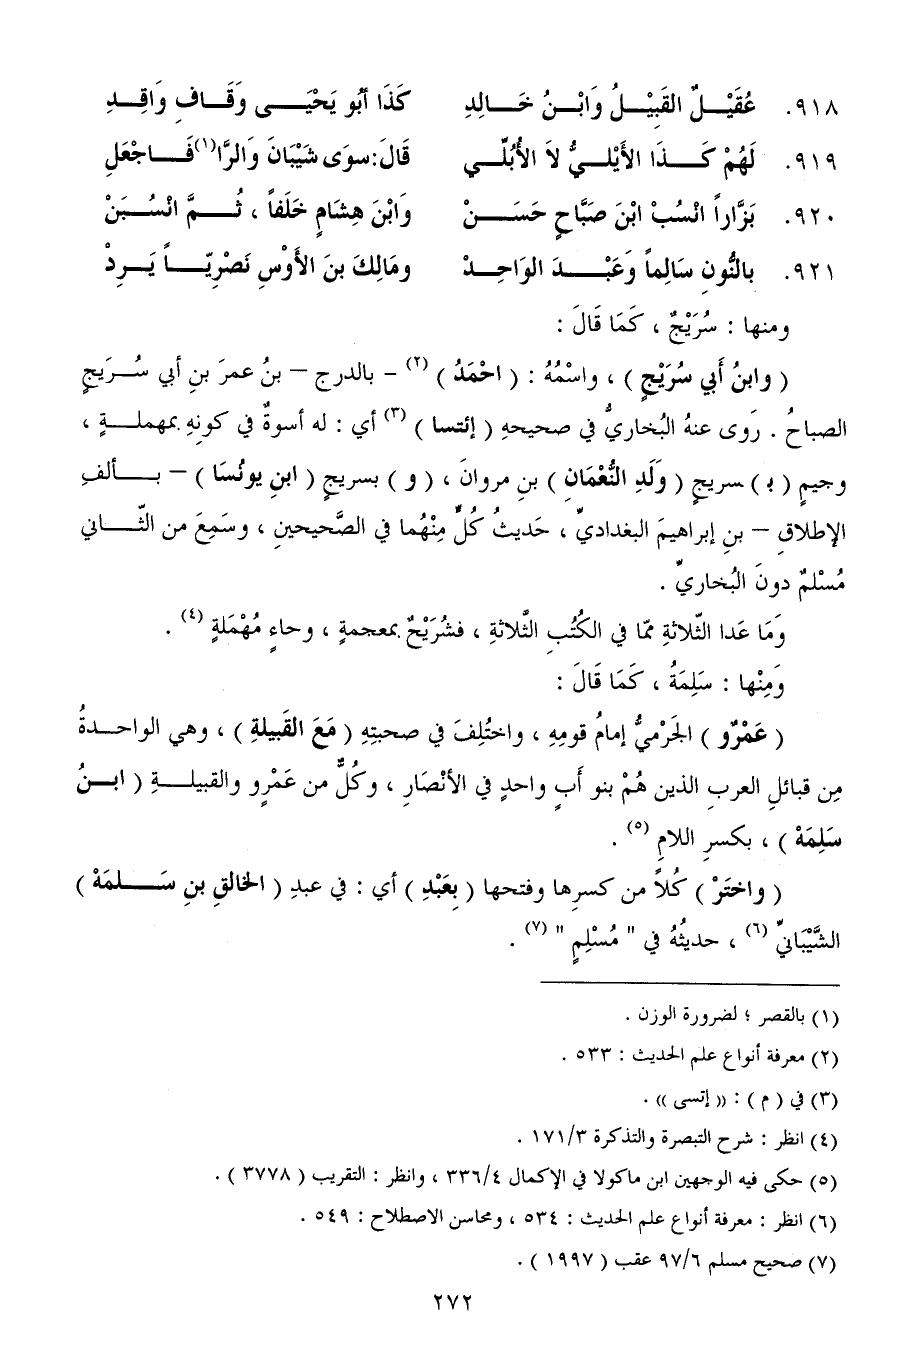 ٩١٨. عُقَيْلٌ القَبِيْلُ وَابْنُ خَالِدِ كَذَا أبُو يَحْيَى وَقَافِ وَاقِدِ
٩١٩. لَهُمْ كَذَا الأَيْلِيُّ لاَ الأُبُلِّي قَالَ: سِوَى شَيْبَانَ وَالرَّا(١) فَاجْعَلِ
٩٢٠. بَزَّاراً انْسُبْ ابْنَ صَبَّاحٍ حَسَنْ وَابْنَ هِشَامٍ خَلَفاً ، ثُمَّ انْسُبَنْ
٩٢١. بالنُّونِ سَالِماً وَعَبْدَ الوَاحِدْ وَمَالِكَ بنَ الأَوْسِ نَصْرِيّاً يَرِدْ
ومنها : سُرَيْجٌ ، كَمَا قَالَ :
( وابنُ أَبي سُرَيْجٍ ) ، واسْمُهُ : ( احْمَدُ ) (٢) – بالدرج – بنُ عمرَ بنِ أبي سُريجٍ
الصباحُ . رَوى عنهُ البُخاريُّ في صحيحهِ ( إئتسا ) (٣) أي : له أسوةٌ في كونهِ بمهملةٍ ،
وجيمٍ ( بـ ) سريجٍ ( وَلَدِ النُّعْمَانِ ) بنِ مروانَ ، ( و ) بسريجٍ ( ابنِ يونُسَا ) – بألفِ
الإطلاقِ – بنِ إبراهيمَ البغداديِّ ، حَديثُ كُلٍّ مِنْهُما في الصَّحيحينِ ، وسَمِعَ من الثّاني
مُسْلمٌ دونَ البُخاريِّ .
وَمَا عَدا الثّلاثةِ ممّا في الكُتُبِ الثَّلاثةِ ، فشُرَيْحٌ بمعجمةٍ ، وحاءٍ مُهْمَلةٍ (٤) .
وَمِنْها : سَلِمَةُ ، كَمَا قَالَ :
( عَمْرٌو ) الجَرْميُّ إمامُ قومِهِ ، واختُلِفَ في صحبتِهِ ( مَعَ القَبيلةِ ) ، وهي الواحدةُ
مِن قبائلِ العربِ الذين هُمْ بنو أَبٍ واحدٍ في الأنْصَارِ ، وكُلٌّ من عَمْرٍو والقبيلةِ ( ابنُ
سَلِمَهْ ) ، بكسرِ اللامِ (٥) .
( واختَرْ ) كُلاًّ من كسرِها وفتحها ( بِعَبْدِ ) أي : في عبدِ ( الخالقِ بنِ سَلمَهْ )
الشَّيْبَانيِّ (٦) ، حديثُهُ في " مُسْلِمٍ " (٧) .
(١) بالقصر ؛ لضرورة الوزن .
(٢) معرفة أنواع علم الحديث : ٥٣٣ .
(٣) في ( م ) : « إتسى » .
(٤) انظر : شرح التبصرة والتذكرة ١٧١/٣ .
(٥) حكى فيه الوجهين ابن ماكولا في الإكمال ٣٣٦/٤ ، وانظر : التقريب ( ٣٧٧٨ ) .
(٦) انظر : معرفة أنواع علم الحديث : ٥٣٤ ، ومحاسن الاصطلاح : ٥٤٩ .
(٧) صحيح مسلم ٩٧/٦ عقب ( ١٩٩٧ ) .
٢٧٢